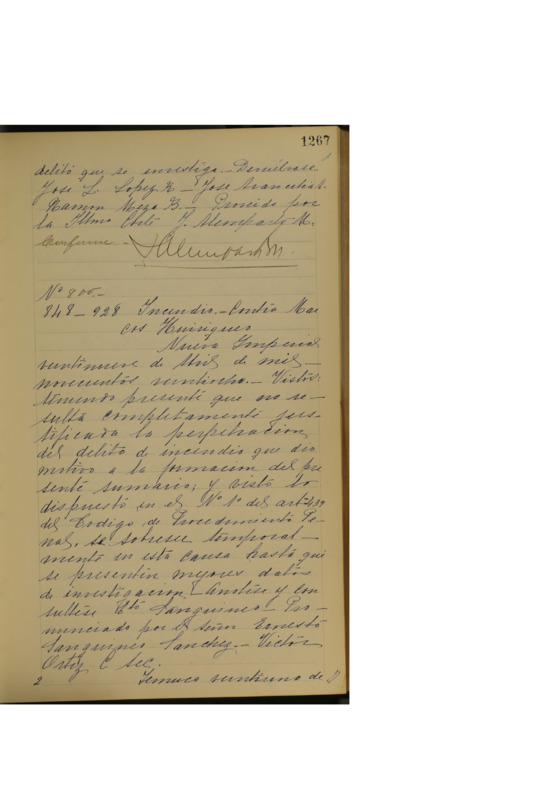 1267
delito que se investiga. - Devuélvase
Jose L. Lopez R - Jose Arancibia A.
Ramon Meza B. - Proveido por
la Iltma Corte J. Alemparte M.
Conforme -
Nº 805.-
848 - 928 Incendio. - Contra Mar
cos Huiriqueo
Nueva Imperial
veintinueve de Abril de mil
novecientos veintiocho. - Vistos:
teniendo presente que no re-
sulta completamente jus-
tificada la perpetracion
del delito de incendio que dio
motivo a la formacion del pre
sente sumario; y visto lo
dispuesto en el Nº 1º del art 439
del Codigo de Procedimiento Pe-
nal, se sobresee temporal-
mente en esta causa hasta que
se presenten mejores datos
de investigacion. Anótese y con
sultese Eto Sanguineo - Pro-
nunciado por el señor Ernesto
Sanguineo Sanchez. - Victor
Ortiz C sec.
2 Temuco veintiuno de